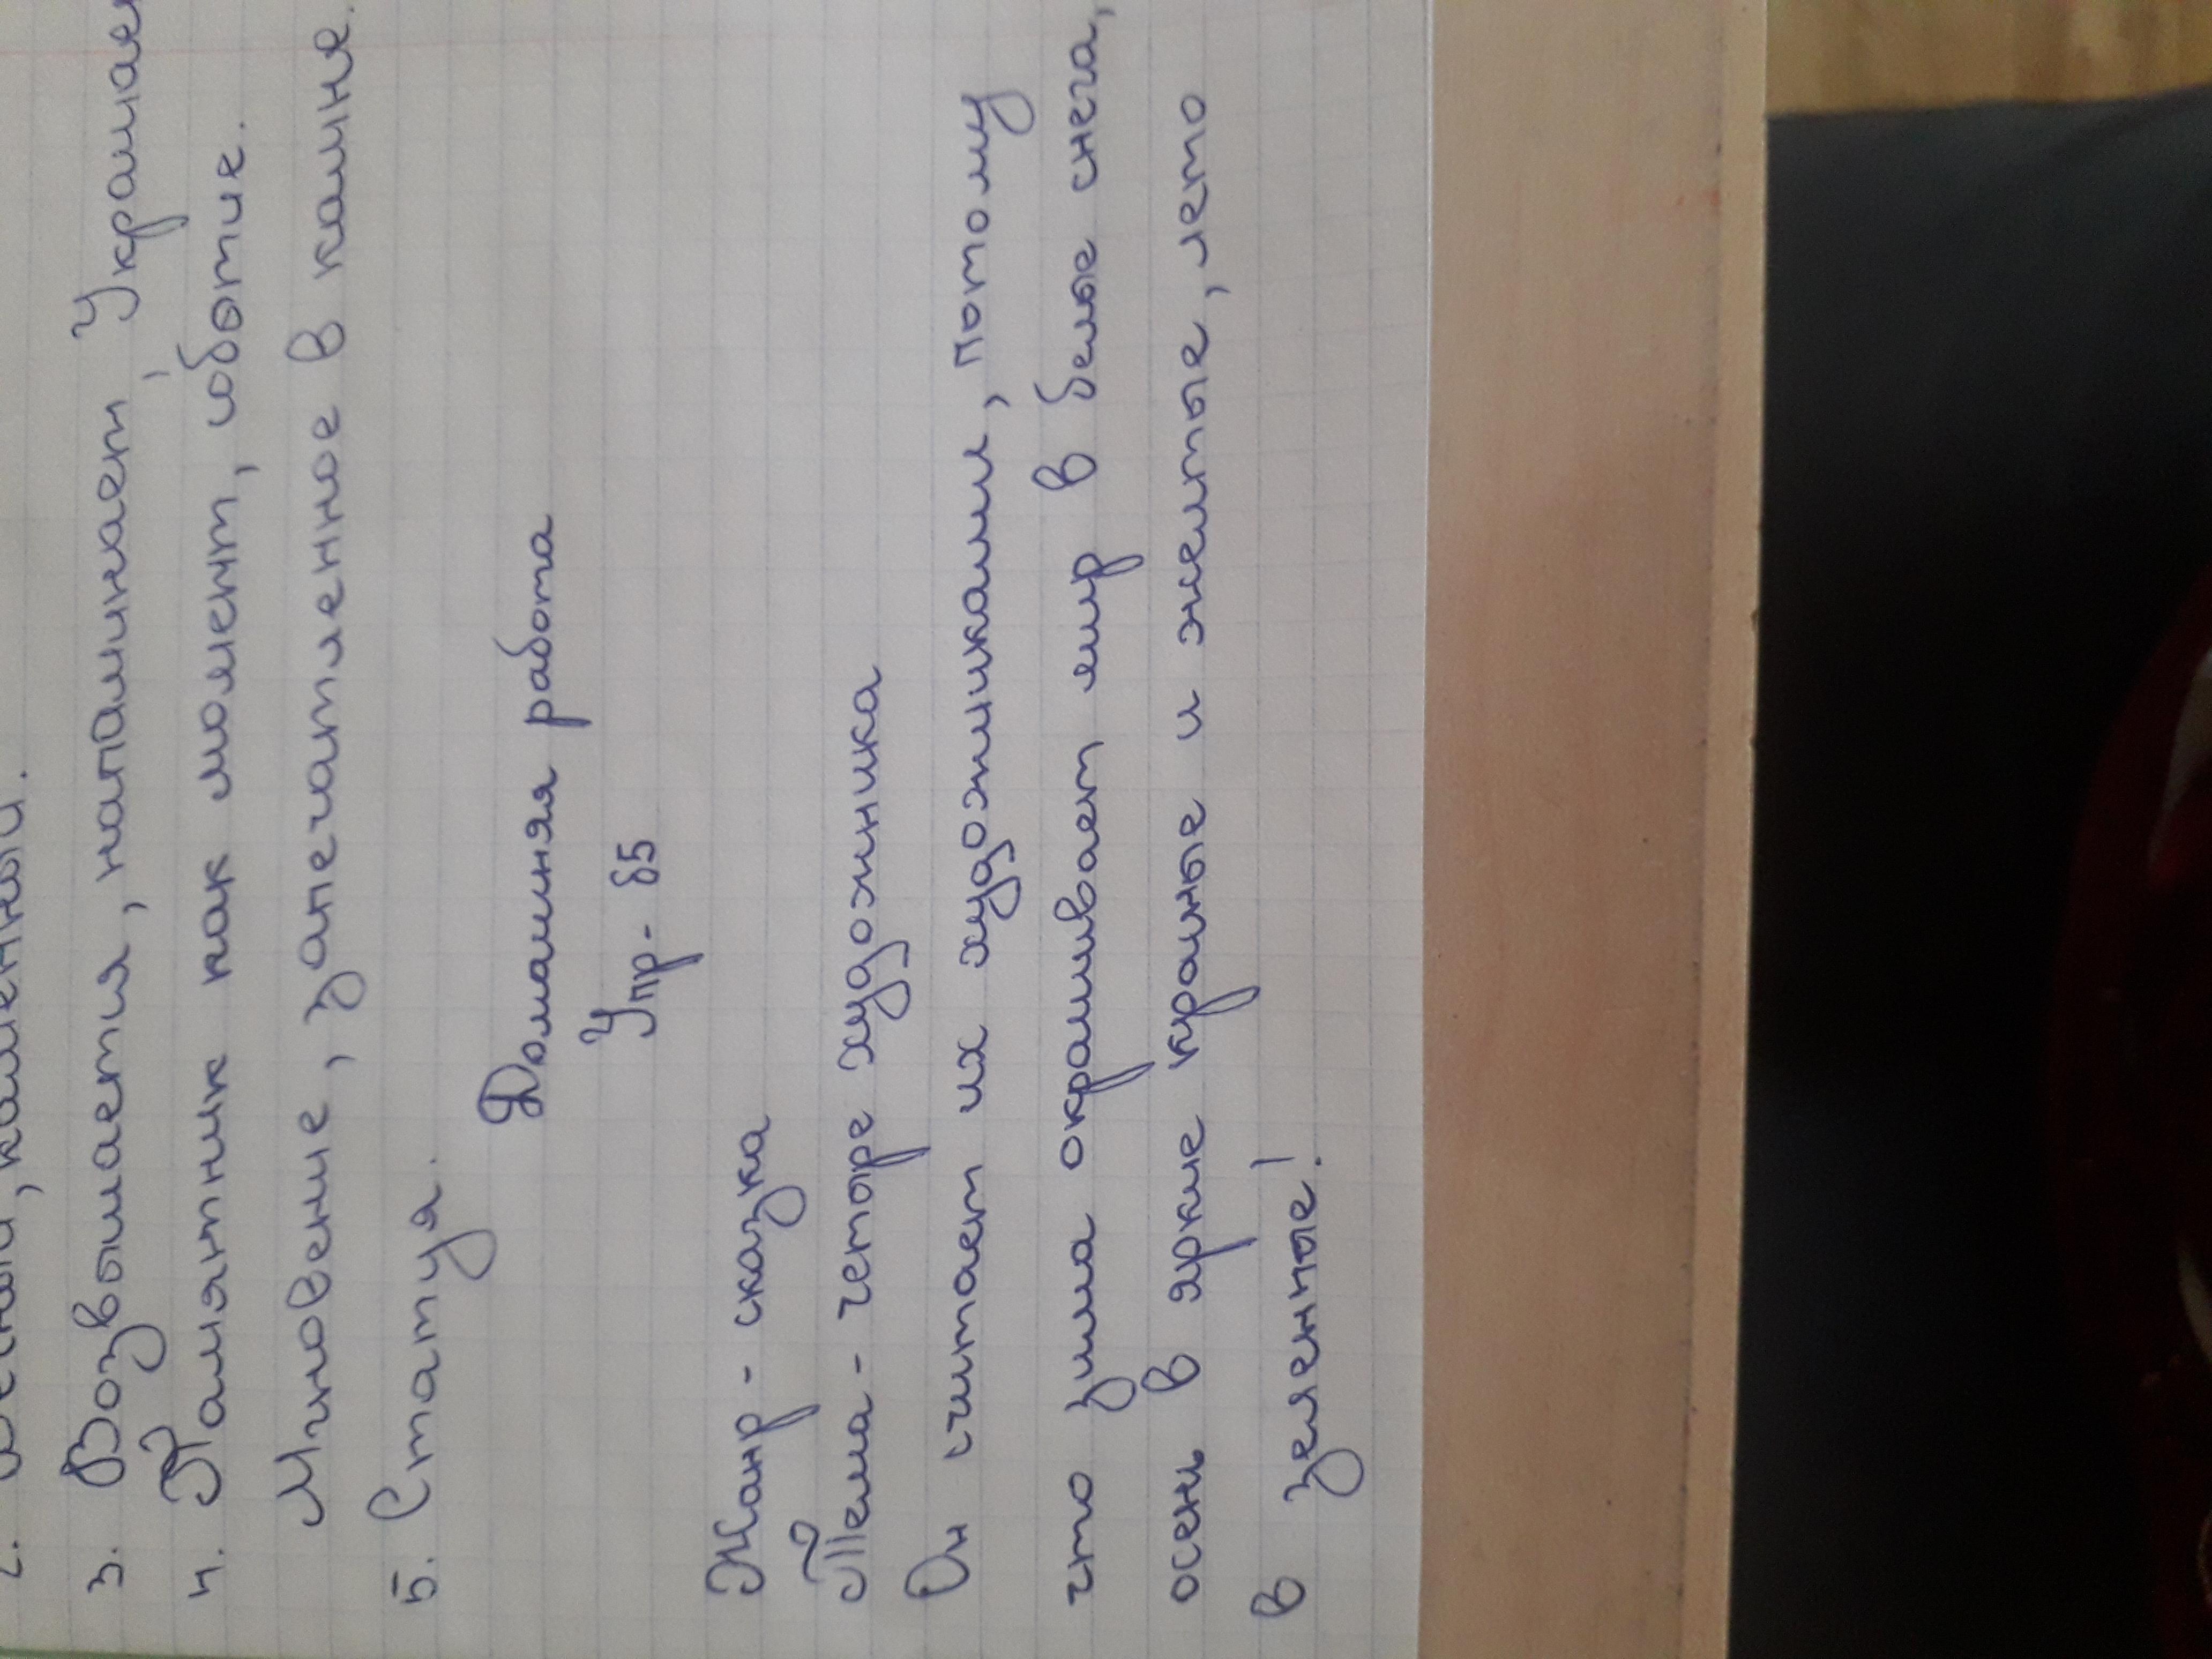 2. , каменный.
3. Возвышается, напоминает, Украшает
4. Памятник как момент, событие.
Мгновение, запечатленное в камне.
5. Статуя.
Домашняя работа
Упр- 85
Жанр - сказка
Тема - четыре художника
Он считает их художниками, потому
что зима окрашивает мир в белые снега,
осень в яркие красные и желтые, лето
в зеленные!